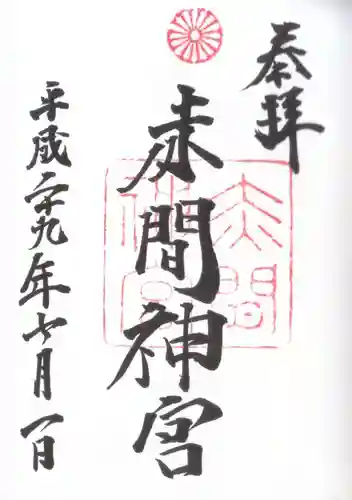 奉拝
赤間神宮
平成二十九年七月一日
赤間神宮